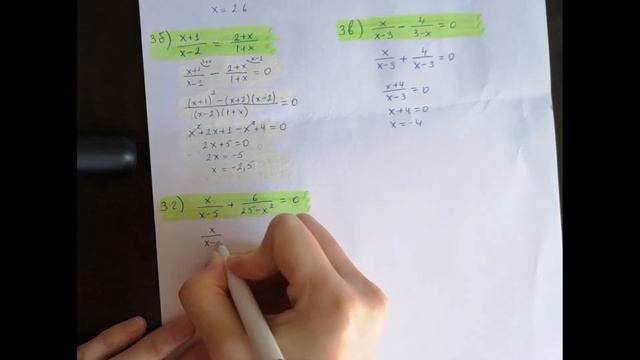 x = 2.6
3б) (x+1)/(x-2) = (2+x)/(1+x)
(x+1)/(x-1) - (2+x)/(1+x) = 0
((x+1)² - (x+2)(x-2))/((x-2)(1+x)) = 0
x²+2x+1-x²+4=0
2x+5=0
2x=-5
x=-2,5
3в) x/(x-3) - 4/(3-x) = 0
x/(x-3) + 4/(x-3) = 0
(x+4)/(x-3) = 0
x+4=0
x=-4
3г) x/(x-5) + 6/(25-x²) = 0
x/(x-